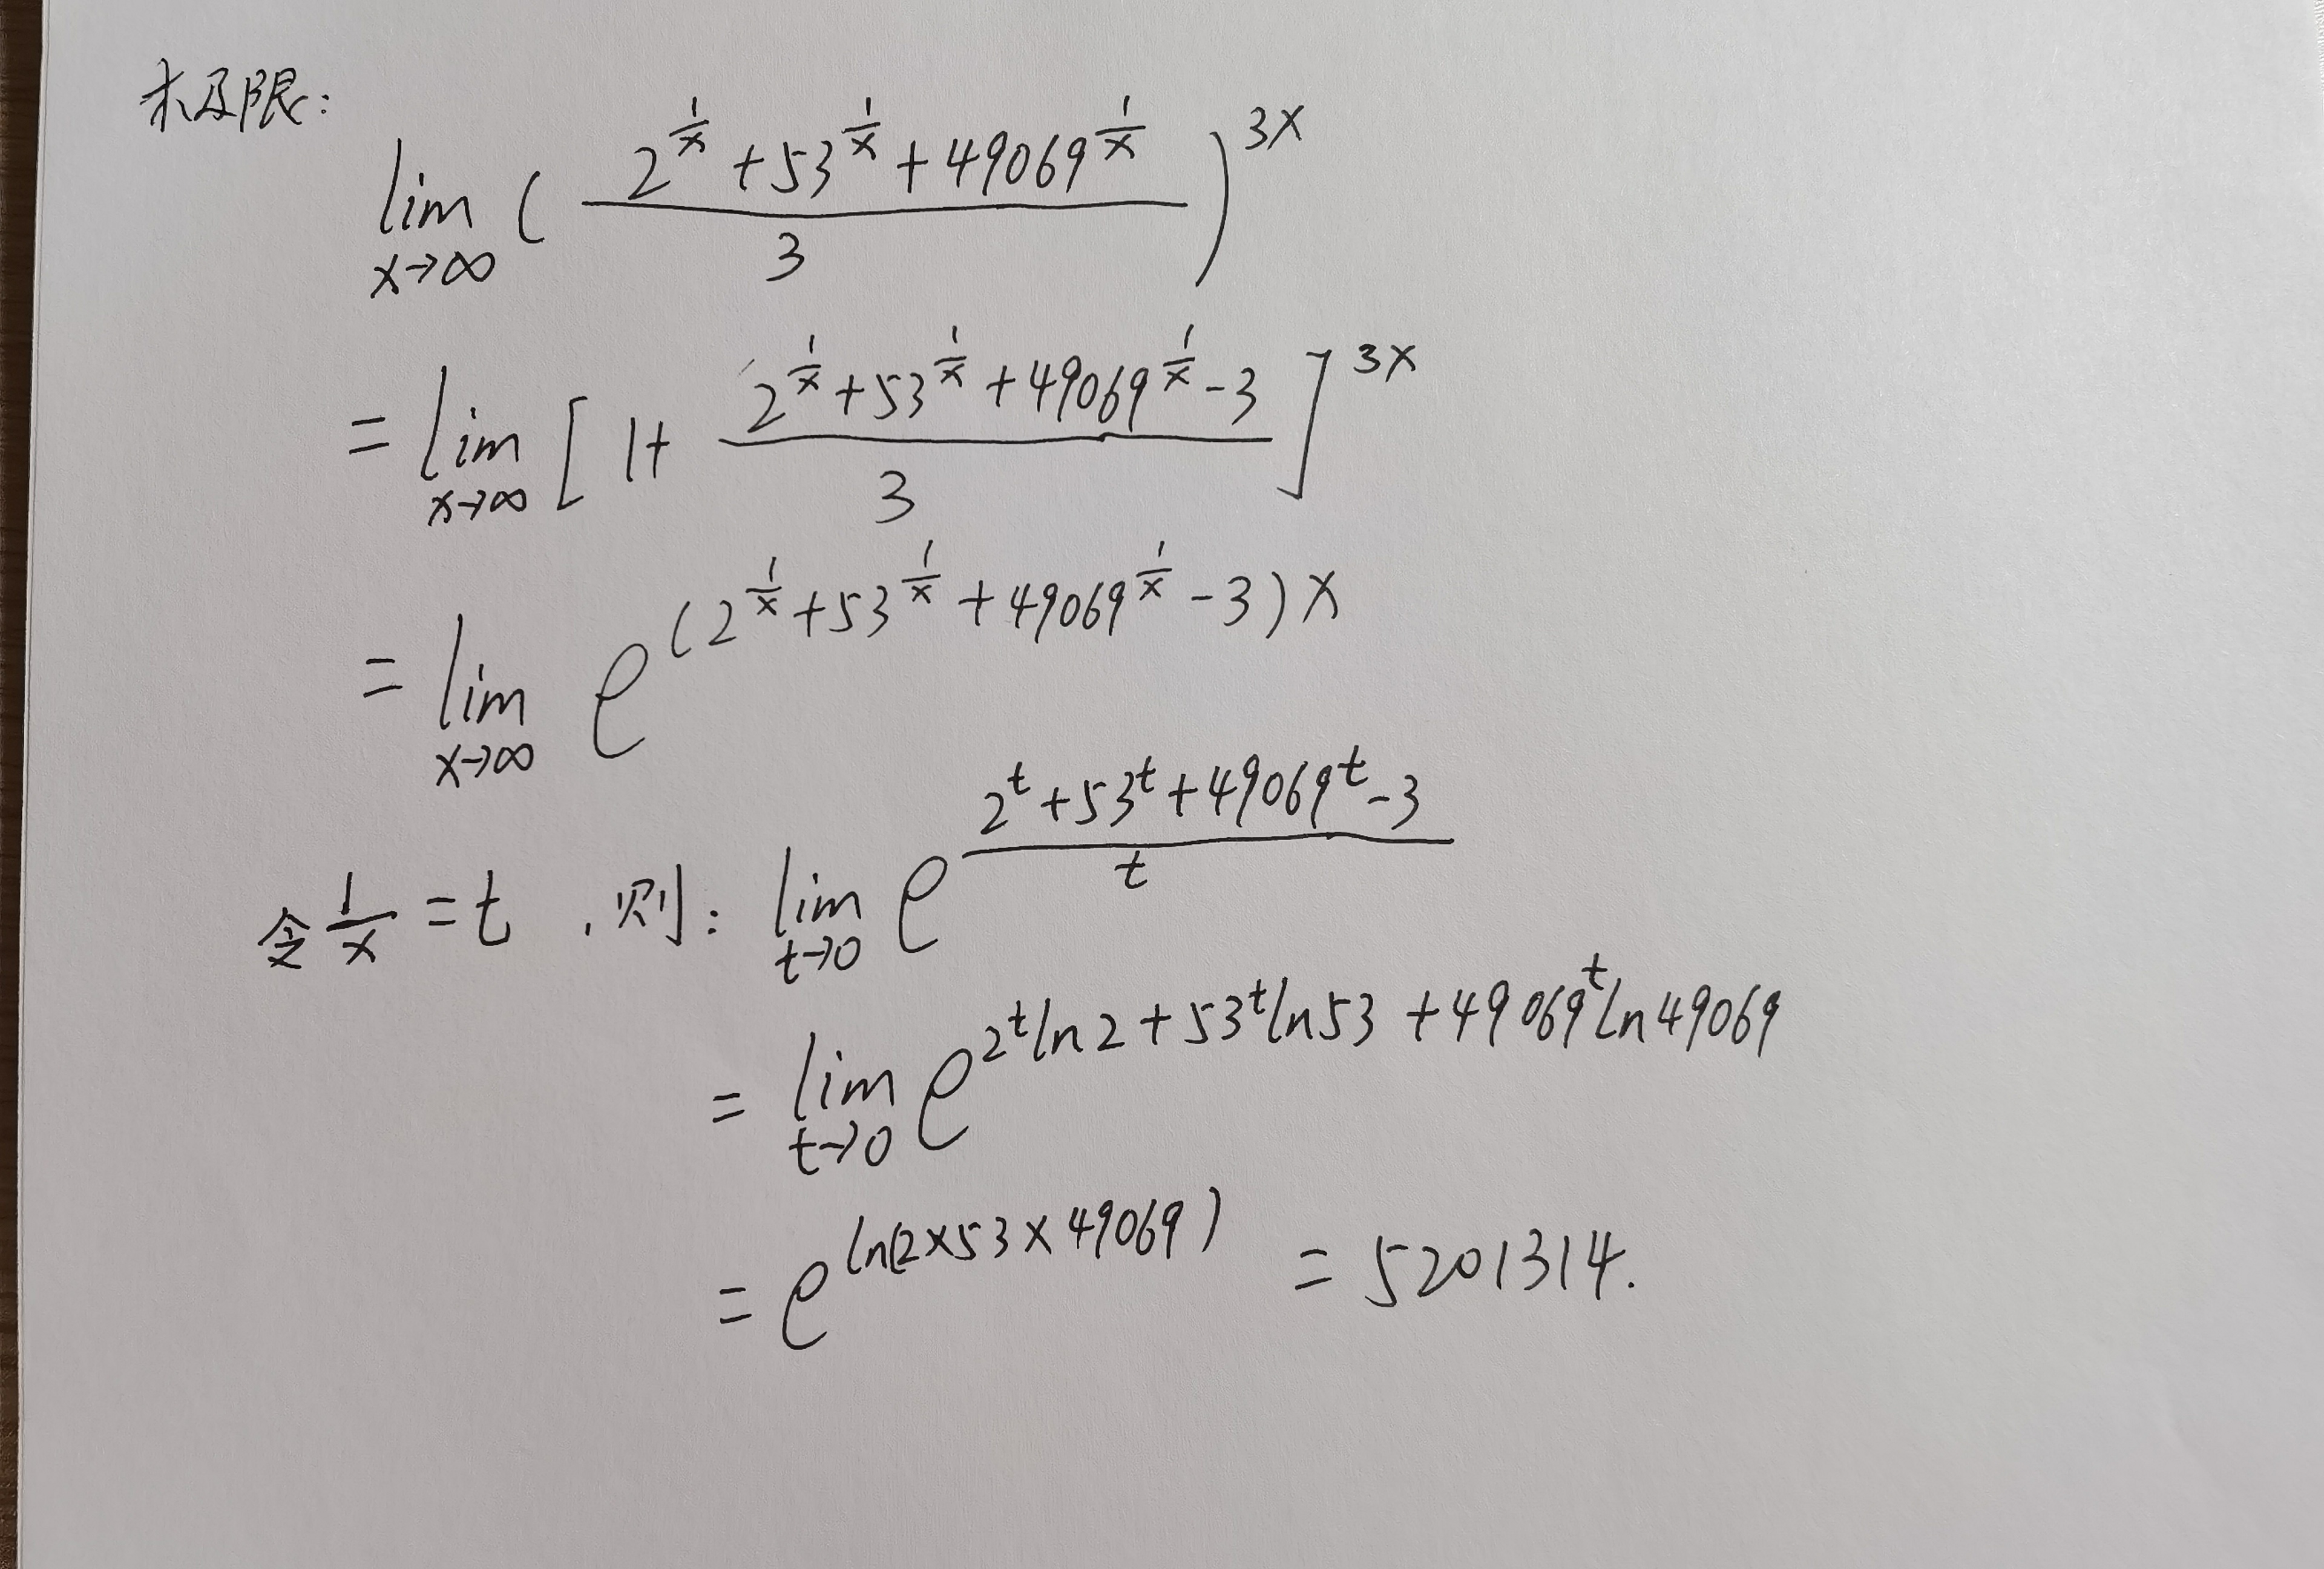 求极限:
lim x→∞ ( (2^(1/x) + 53^(1/x) + 49069^(1/x)) / 3 )^(3x)
= lim x→∞ [ 1 + (2^(1/x) + 53^(1/x) + 49069^(1/x) - 3) / 3 ]^(3x)
= lim x→∞ e^((2^(1/x) + 53^(1/x) + 49069^(1/x) - 3) x)
令 1/x = t , 则: lim t→0 e^((2^t + 53^t + 49069^t - 3) / t)
= lim t→0 e^(2^t ln2 + 53^t ln53 + 49069^t ln49069)
= e^(ln(2×53×49069)) = 5201314.